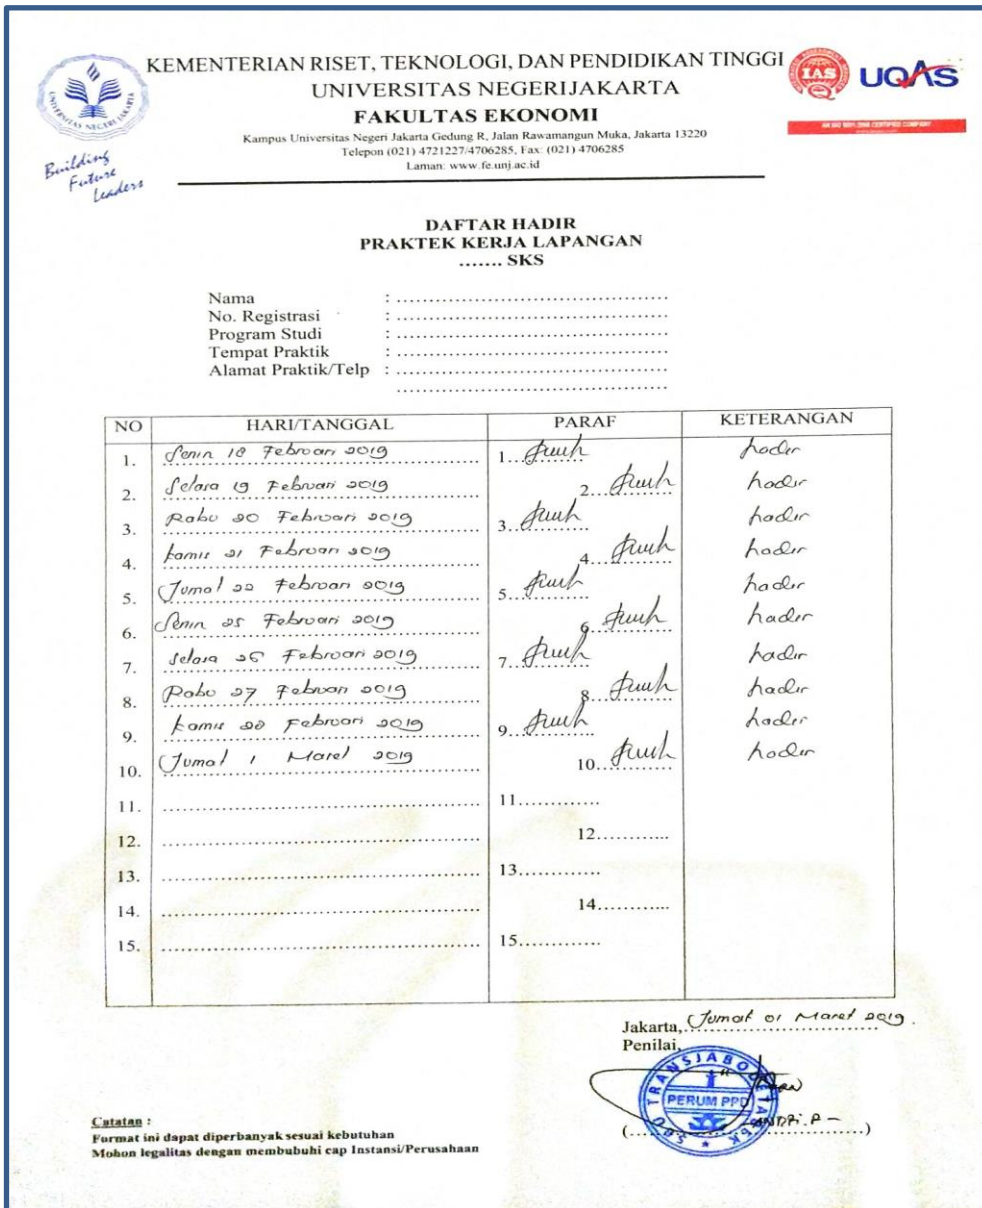 KEMENTERIAN RISET, TEKNOLOGI, DAN PENDIDIKAN TINGGI
UNIVERSITAS NEGERIJAKARTA
FAKULTAS EKONOMI
Kampus Universitas Negeri Jakarta Gedung R, Jalan Rawamangun Muka, Jakarta 13220
Telepon (021) 4721227/4706285, Fax: (021) 4706285
Laman: www.fe.unj.ac.id
UNIVERSITAS NEGERI JAKARTA
Building
Future
Leaders
IAS
UQAS
DAFTAR HADIR
PRAKTEK KERJA LAPANGAN
....... SKS
Nama : ..........................................
No. Registrasi : ..........................................
Program Studi : ..........................................
Tempat Praktik : ..........................................
Alamat Praktik/Telp : ..........................................
..........................................
NO HARI/TANGGAL PARAF KETERANGAN
1. Senin 18 Februari 2019 1. hadir
2. Selasa 19 Februari 2019 2. hadir
3. Rabu 20 Februari 2019 3. hadir
4. kamis 21 Februari 2019 4. hadir
5. Jumat 22 Februari 2019 5. hadir
6. Senin 25 Februari 2019 6. hadir
7. Selasa 26 Februari 2019 7. hadir
8. Rabu 27 Februari 2019 8. hadir
9. kamis 28 Februari 2019 9. hadir
10. Jumat 1 Maret 2019 10. hadir
11. .......... 11.............
12. .......... 12............
13. .......... 13.............
14. .......... 14............
15. .......... 15.............
Jakarta, Jumat 01 Maret 2019.
Penilai,
SGO TRANSJABODETABEK
PERUM PPD
(ANDRI.P-)
Catatan :
Format ini dapat diperbanyak sesuai kebutuhan
Mohon legalitas dengan membubuhi cap Instansi/Perusahaan